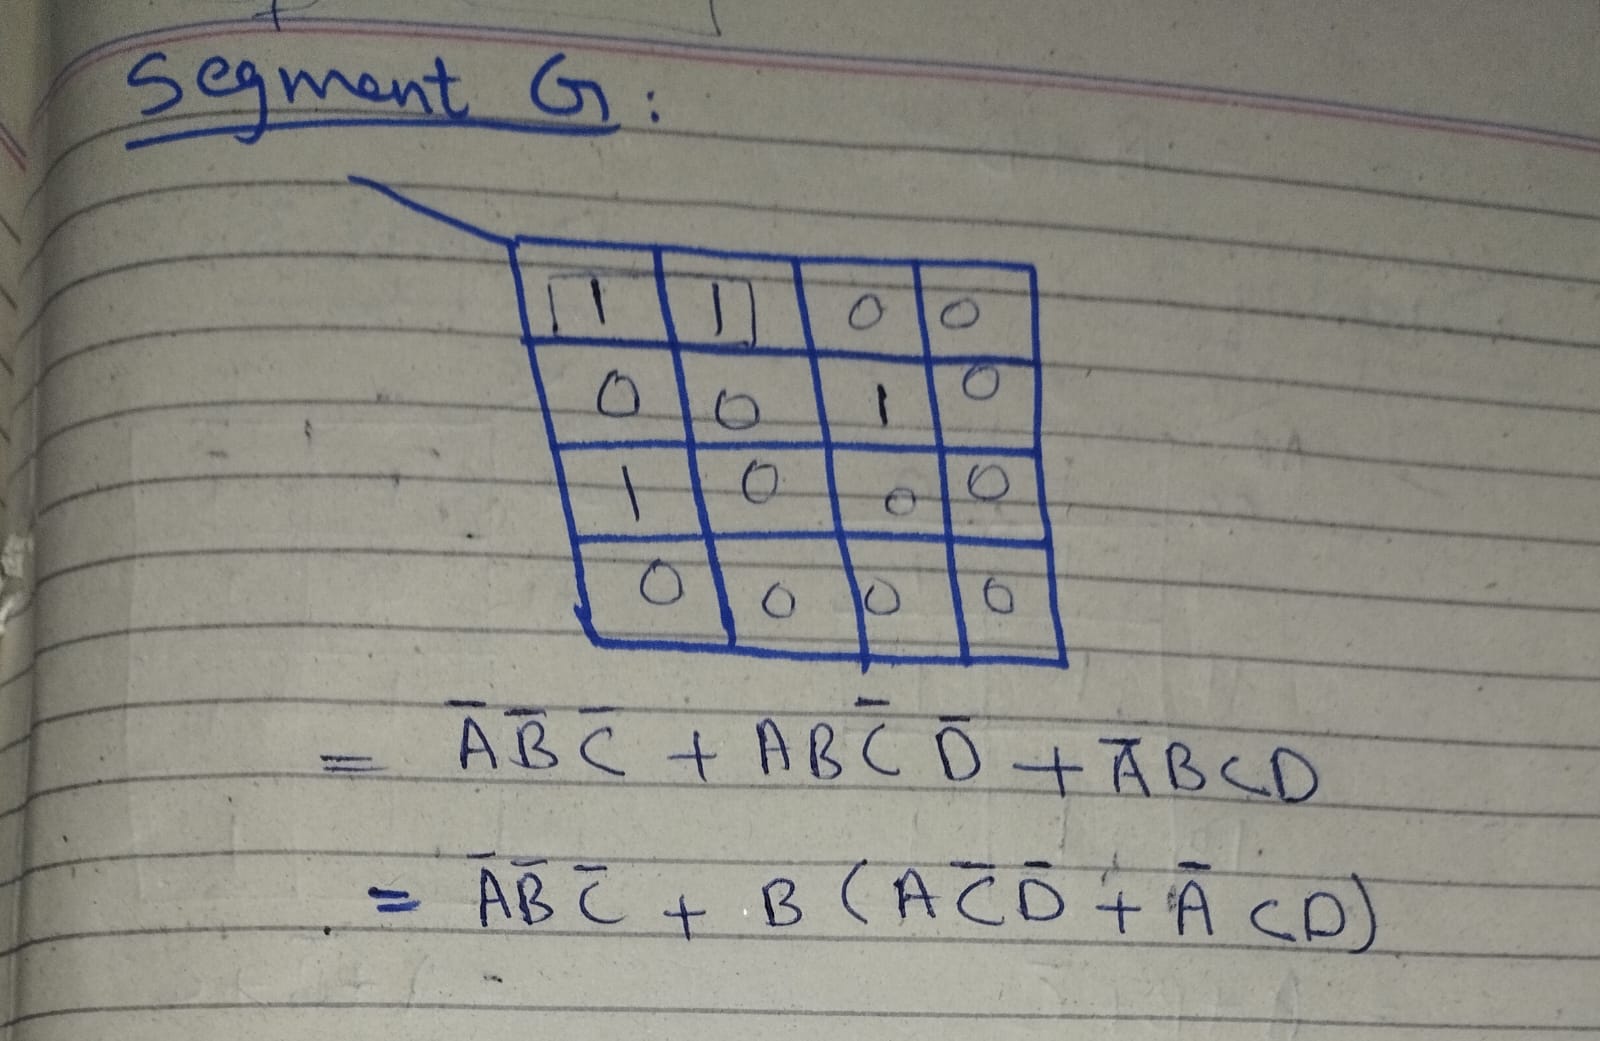 Segment G:
1 1 0 0
0 0 1 0
1 0 0 0
0 0 0 0
= A̅ B̅ C̅ + A B C̅ D̅ + A̅ B C D
= A̅ B̅ C̅ + B ( A C̅ D̅ + A̅ C D )